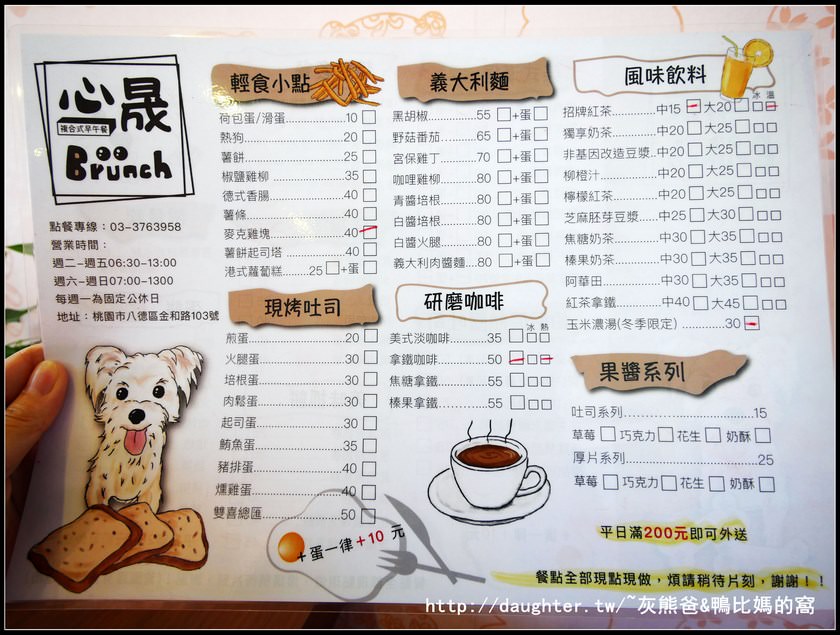 心晟
複合式早午餐
Brunch
點餐專線：03-3763958
營業時間：
週二-週五06:30-13:00
週六-週日07:00-1300
每週一為固定公休日
地址：桃園市八德區金和路103號
輕食小點
荷包蛋/滑蛋 10
熱狗 20
薯餅 25
椒鹽雞柳 35
德式香腸 40
薯條 40
麥克雞塊 40
薯餅起司塔 40
港式蘿蔔糕 25 +蛋
現烤吐司
煎蛋 20
火腿蛋 30
培根蛋 30
肉鬆蛋 30
起司蛋 30
鮪魚蛋 35
豬排蛋 40
燻雞蛋 40
雙喜總匯 50
+蛋一律+10 元
義大利麵
黑胡椒 55 +蛋
野菇番茄 65 +蛋
宮保雞丁 70 +蛋
咖哩雞柳 80 +蛋
青醬培根 80 +蛋
白醬培根 80 +蛋
白醬火腿 80 +蛋
義大利肉醬麵 80 +蛋
研磨咖啡
冰 熱
美式淡咖啡 35
拿鐵咖啡 50
焦糖拿鐵 55
榛果拿鐵 55
風味飲料
冰 溫
招牌紅茶 中15 大20
獨享奶茶 中20 大25
非基因改造豆漿 中20 大25
柳橙汁 中20 大25
檸檬紅茶 中20 大25
芝麻胚芽豆漿 中25 大30
焦糖奶茶 中30 大35
榛果奶茶 中30 大35
阿華田 中30 大35
紅茶拿鐵 中40 大45
玉米濃湯(冬季限定) 30
果醬系列
吐司系列 15
草莓 巧克力 花生 奶酥
厚片系列 25
草莓 巧克力 花生 奶酥
平日滿200元即可外送
餐點全部現點現做，煩請稍待片刻，謝謝！！
http://daughter.tw/~灰熊爸&鴨比媽的窩